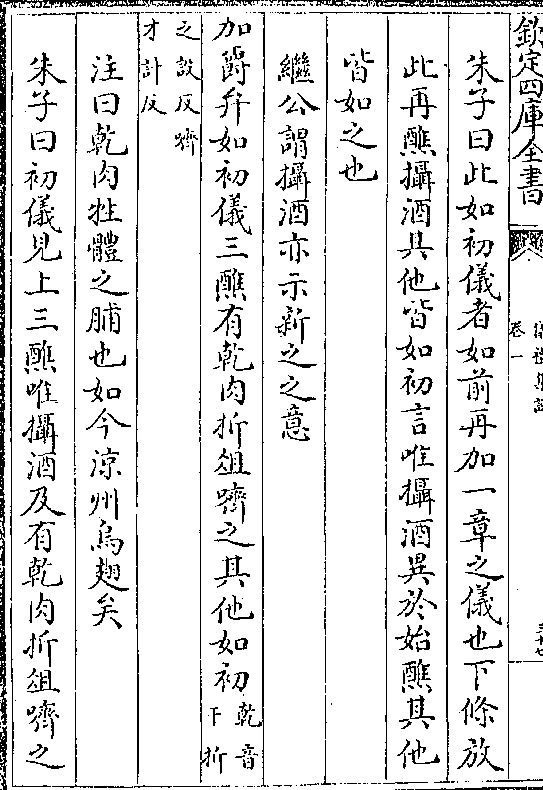 欽定四庫全書
儀禮集說
卷一
三十七
朱子曰此如初儀者如前再加一章之儀也下條放
此再醮攝酒其他皆如初言唯攝酒異於始醮其他
皆如之也
繼公謂攝酒亦示新之之意
加爵弁如初儀三醮有乾肉折俎嚌之其他如初乾音
干折
之設反嚌
才計反
注曰乾肉牲體之脯也如今涼州烏翅矣
朱子曰初儀見上三醮唯攝酒及有乾肉折俎嚌之